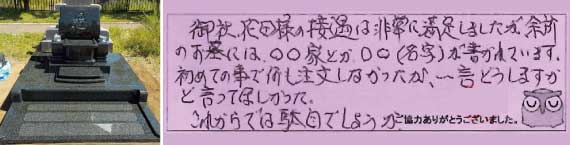 御社、花田様の接遇は非常に満足しましたが、余所
のお墓には、○○家とか、○○(名字)が書かれています。
初めての事で何も注文しなかったが、一言どうしますか
と言ってほしかった。
これからでは駄目でしょうか。
ご協力ありがとうございました。